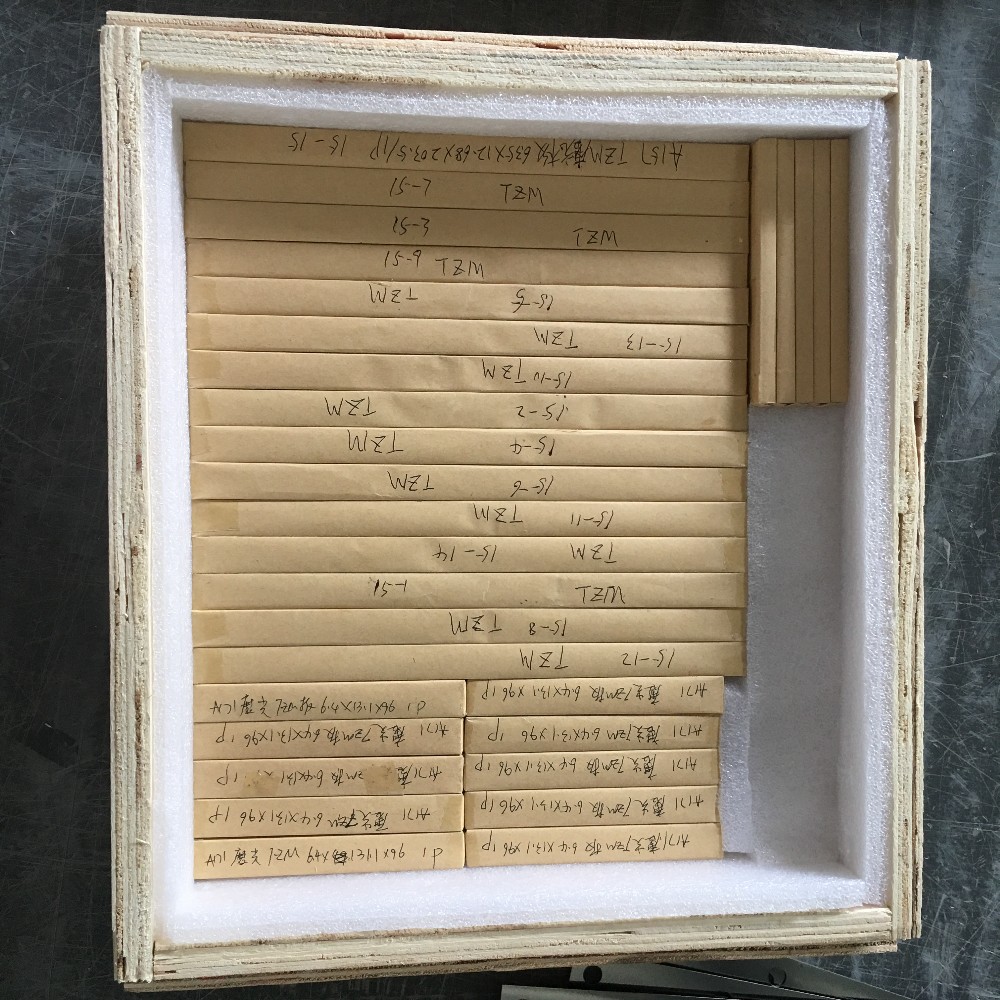 A171 磨光TZM板 6.4X13.1X96 1P
A171 磨光TZM 6.4X13.1X96 1P
A171 磨光TZM板 6.4X13.1X96 1P
A171 磨光TZM 6.4X13.1X96 1P
A171 磨光TZM板 6.4X13.1X96 1P
A171 磨 TZM板 6.4X13.1 1P
A171 磨光TZM 6.4X13.1X96 1P
A171 磨光TZM板 6.4X13.1X96 1P
A171 磨光TZM板 6.4X13.1X96 1P
A171 磨光TZM板 6.4X13.1X96 1P
15-12 TZM
15-8 TZM
TZM 15-1
TZM 15-14
15-11 TZM
15-6 TZM
15-4 TZM
15-2 TZM
15-10 TZM
15-13 TZM
15-5 TZM
TZM 15-9
TZM 15-3
TZM 15-7
A157 TZM磨光板 6.35X12.68X203.5/1P 15-15